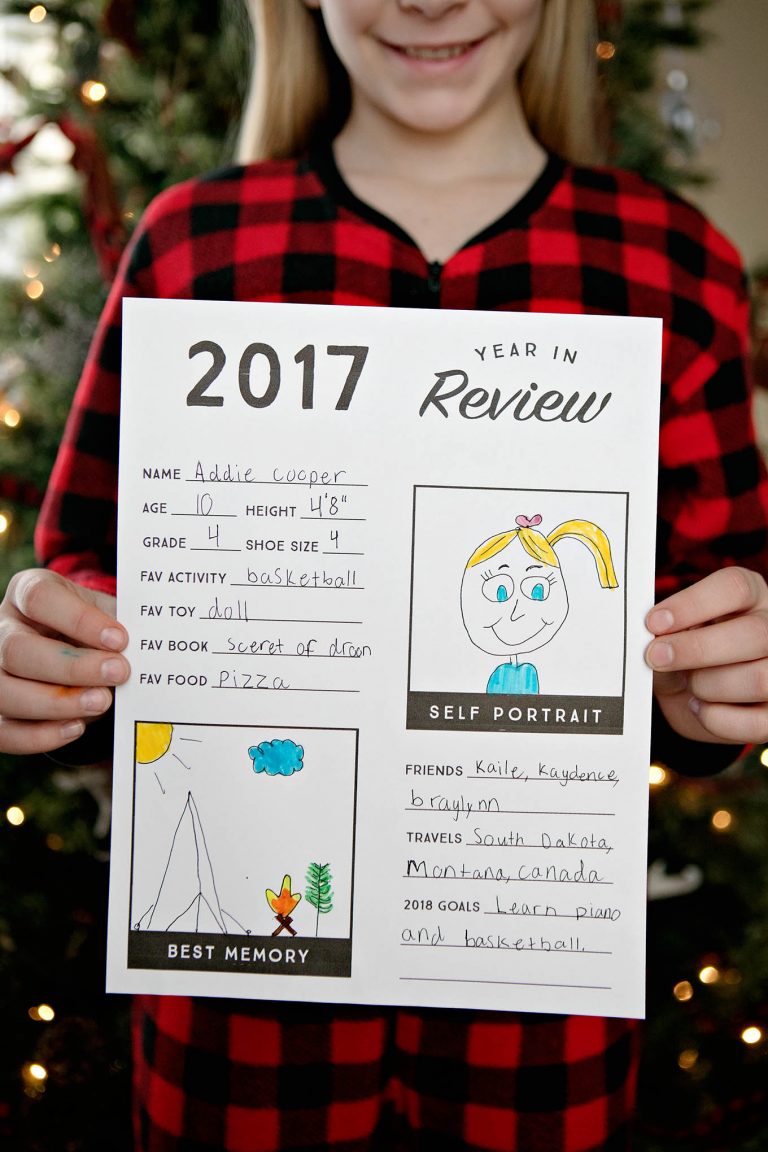 2017
YEAR IN
Review
NAME Addie cooper
AGE 10 HEIGHT 4'8"
GRADE 4 SHOE SIZE 4
FAV ACTIVITY basketball
FAV TOY doll
FAV BOOK sceret of droon
FAV FOOD Pizza
SELF PORTRAIT
BEST MEMORY
FRIENDS Kaile, Kaydence,
braylynn
TRAVELS South Dakota,
Montana, Canada
2018 GOALS Learn piano
and basketball.